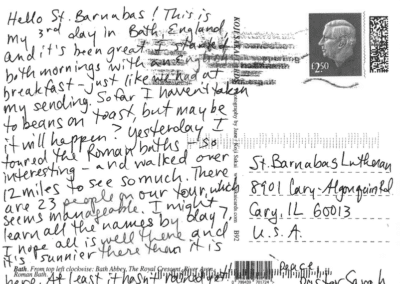 Hello St. Barnabas! This is
my 3rd day in Bath, England
and it's been great. I started
both mornings with an English
breakfast - just like we had at
my sending. So far I haven't taken
to beans on toast, but maybe
it will happen. > Yesterday I
toured the Roman baths - so
interesting - and walked over
12 miles to see so much. There
are 23 people on our tour, which
seems manageable. I might
learn all the names by day 7.
I hope all is well there and
it's sunnier there than it is
here. At least it hasn't rained yet!
Peace,
Pastor Sarah
£2.50
St. Barnabas Lutheran
8901 Cary-Algonquin Rd.
Cary, IL 60013
U.S.A.
B92
Bath. From top left clockwise: Bath Abbey, The Royal Crescent, River Avon,
Roman Bath.